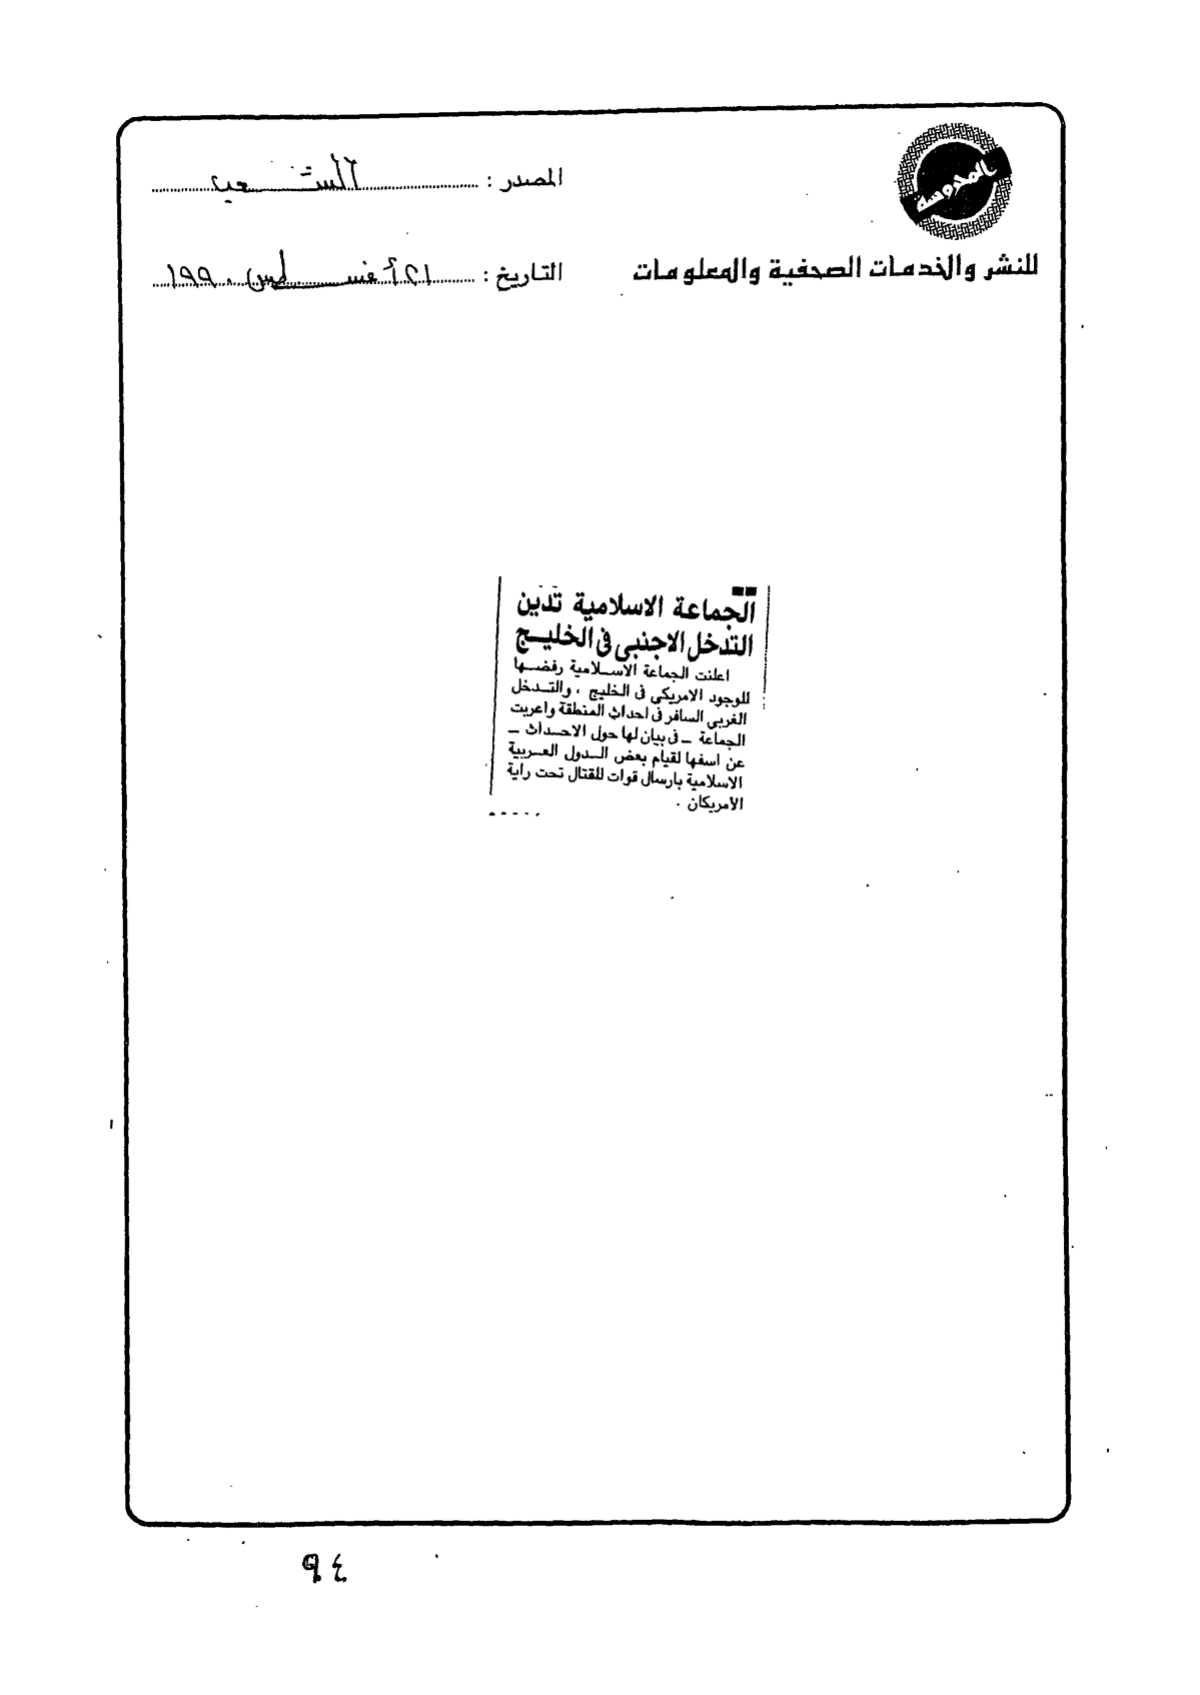 المحروسة
للنشر والخدمات الصحفية والمعلومات
المصدر : الشعب
التاريخ : ٢١ أغسطس ١٩٩٠
الجماعة الاسلامية تدين
التدخل الاجنبى فى الخليج
اعلنت الجماعة الاسلامية رفضها
للوجود الامريكى فى الخليج ، والتدخل
الغربى السافر فى احداث المنطقة واعربت
الجماعة ـ فى بيان لها حول الاحداث ـ
عن اسفها لقيام بعض الدول العربية
الاسلامية بارسال قوات للقتال تحت راية
الأمريكان .
٩٤